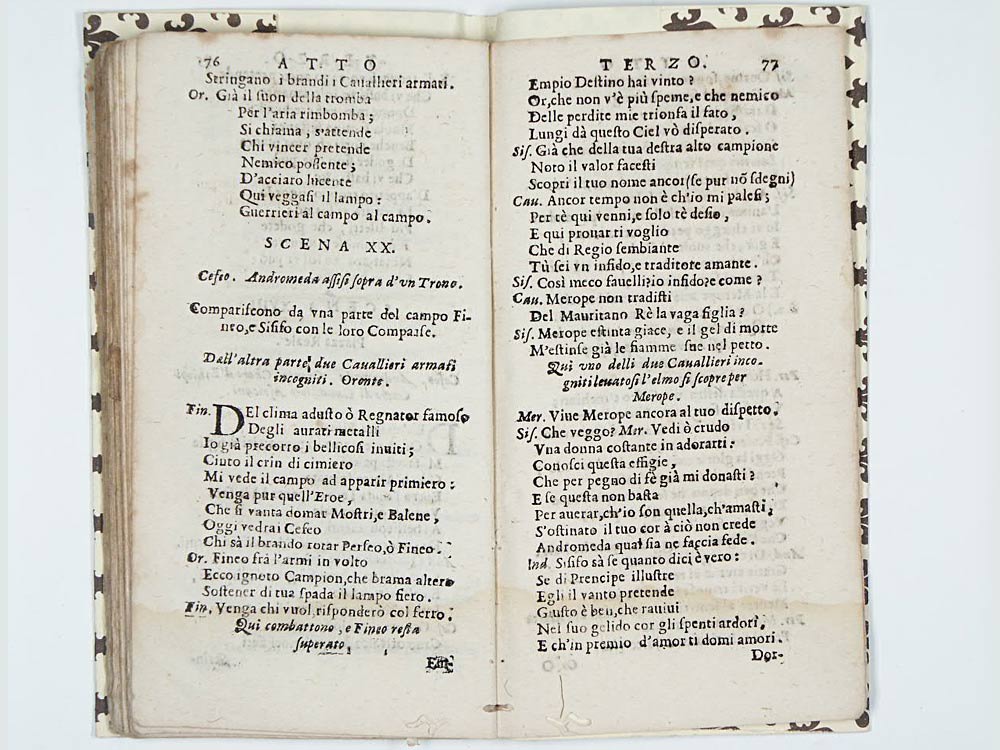 76 ATTO
Stringano i brandi i Cauallieri armati.
Or. Già il suon della tromba
Per l'aria rimbomba;
Si chiama, s'attende
Chi vincer pretende
Nemico possente;
D'acciaro lucente
Qui veggasi il lampo:
Guerrieri al campo al campo.
SCENA XX.
Cefeo. Andromeda assisi sopra d'vn Trono.
Compariscono da vna parte del campo Fi-
neo,e Sisifo con le loro Comparse.
Dall'altra parte due Cauallieri armati
incogniti. Oronte.
Fin. DEl clima adusto ò Regnator famoso
Degli aurati metalli
Io già precorro i bellicosi inuiti;
Cinto il crin di cimiero
Mi vede il campo ad apparir primiero:
Venga pur quell'Eroe,
Che si vanta domar Mostri,e Balene,
Oggi vedrai Cefeo
Chi sà il brando rotar Perseo,ò Fineo.
Or. Fineo frà l'armi in volto
Ecco ignoto Campion,che brama altero
Sostener di tua spada il lampo fiero.
Fin. Venga chi vuol risponderò col ferro.
Qui combattono, e Fineo resta
superato.
Em-
TERZO. 77
Empio Destino hai vinto?
Or,che non v'è più speme,e che nemico
Delle perdite mie trionfa il fato,
Lungi dà questo Ciel vò disperato.
Sis. Già che della tua destra alto campione
Noto il valor facesti
Scopri il tuo nome ancor(se pur nõ sdegni)
Cau. Ancor tempo non è ch'io mi palesi;
Per tè qui venni,e solo tè desio,
E qui prouarti voglio
Che di Regio sembiante
Tù sei vn infido,e traditore amante.
Sis. Così meco fauelli?io infido?e come?
Cau. Merope non tradisti
Del Mauritano Rè la vaga figlia?
Sis. Merope estinta giace, e il gel di morte
M'estinse già le fiamme sue nel petto.
Qui vno delli due Cauallieri inco.
gniti leuatosi l'elmo si scopre per
Merope.
Mer. Viue Merope ancora al tuo dispetto.
Sis. Che veggo? Mer. Vedi ò crudo
Vna donna costante in adorarti:
Conosci questa effigie,
Che per pegno di fè già mi donasti?
E se questa non basta
Per auerar,ch'io son quella,ch'amasti,
S'ostinato il tuo cor à ciò non crede
Andromeda qual sia ne faccia fede.
And. Sisifo sà se quanto dici è vero:
Se di Prencipe illustre
Egli il vanto pretende
Giusto è ben,che rauiui
Nel suo gelido cor gli spenti ardori,
E ch'in premio d'amor ti domi amori.
Dor-